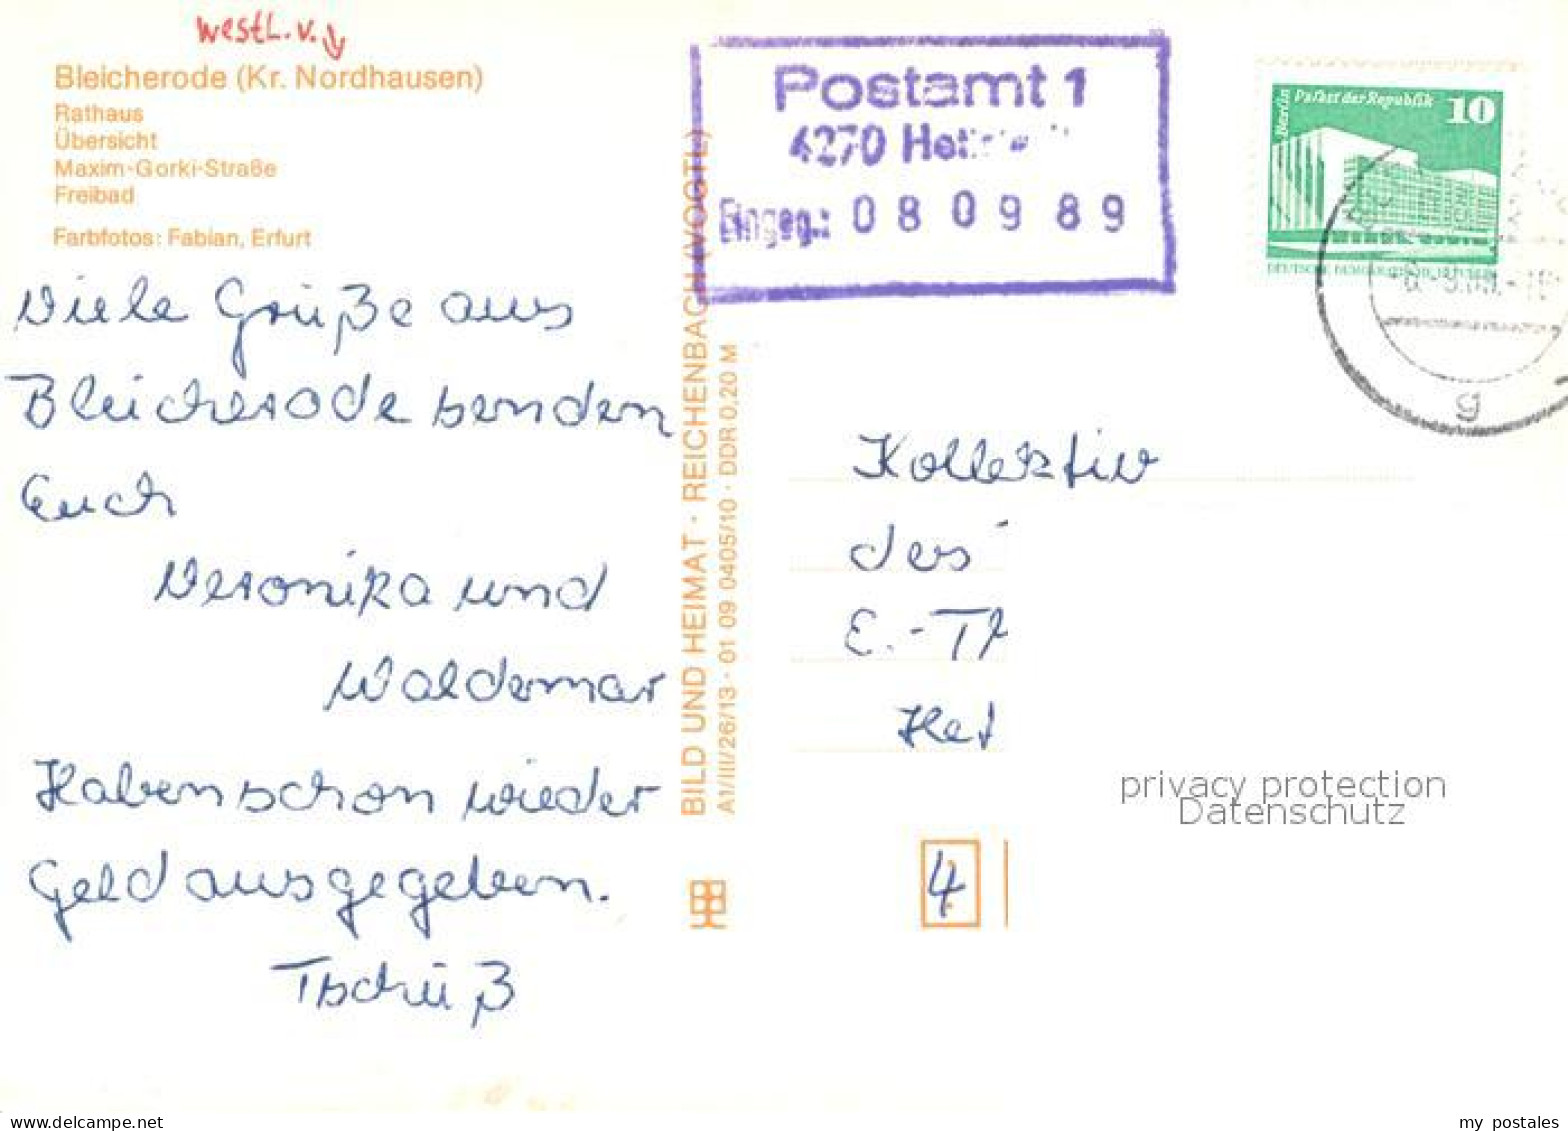 westl. v.
Bleicherode (Kr. Nordhausen)
Rathaus
Übersicht
Maxim-Gorki-Straße
Freibad
Farbfotos: Fabian, Erfurt
Viele Grüße aus
Bleicherode senden
Euch
Veronika und
Waldemar
Haben schon wieder
Geld ausgegeben.
Tschüß
BILD UND HEIMAT · REICHENBACH (VOGTL)
A1/III/26/13 · 01 09 0405/10 · DDR 0,20 M
Postamt 1
4270
Eingeg.: 08 09 89
Berlin Palast der Republik 10
DEUTSCHE DEMOKRATISCHE REPUBLIK
g
Kollektiv
des
E.-
Het
4
privacy protection
Datenschutz
www.delcampe.net
my_postales